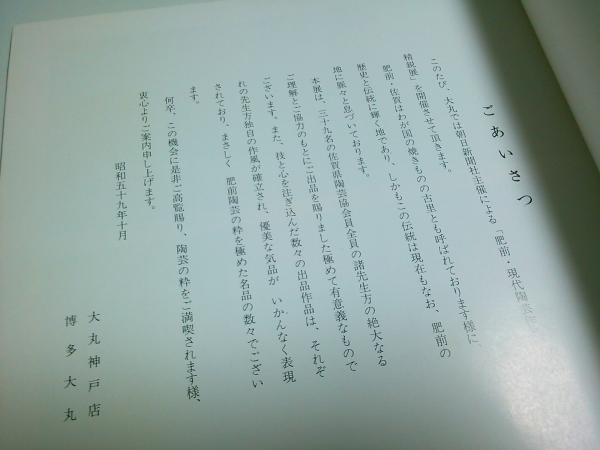 ごあいさつ
このたび、大丸では朝日新聞社主催による「肥前・現代陶芸
精鋭展」を開催させて頂きます。
肥前・佐賀はわが国の焼きものの古里とも呼ばれております様に、
歴史と伝統に輝く地であり、しかもこの伝統は現在もなお、肥前の
地に脈々と息づいております。
本展は、三十九名の佐賀県陶芸協会員全員の諸先生方の絶大なる
ご理解とご協力のもとにご出品を賜りました極めて有意義なもので
ございます。また、技と心を注ぎ込んだ数々の出品作品は、それぞ
れの先生方独自の作風が確立され、優美な気品が いかんなく表現
されており、まさしく 肥前陶芸の粋を極めた名品の数々でござい
ます。
何卒、この機会に是非ご高覧賜り、陶芸の粋をご満喫されます様、
衷心よりご案内申し上げます。
昭和五十九年十月
大丸神戸店
博多大丸